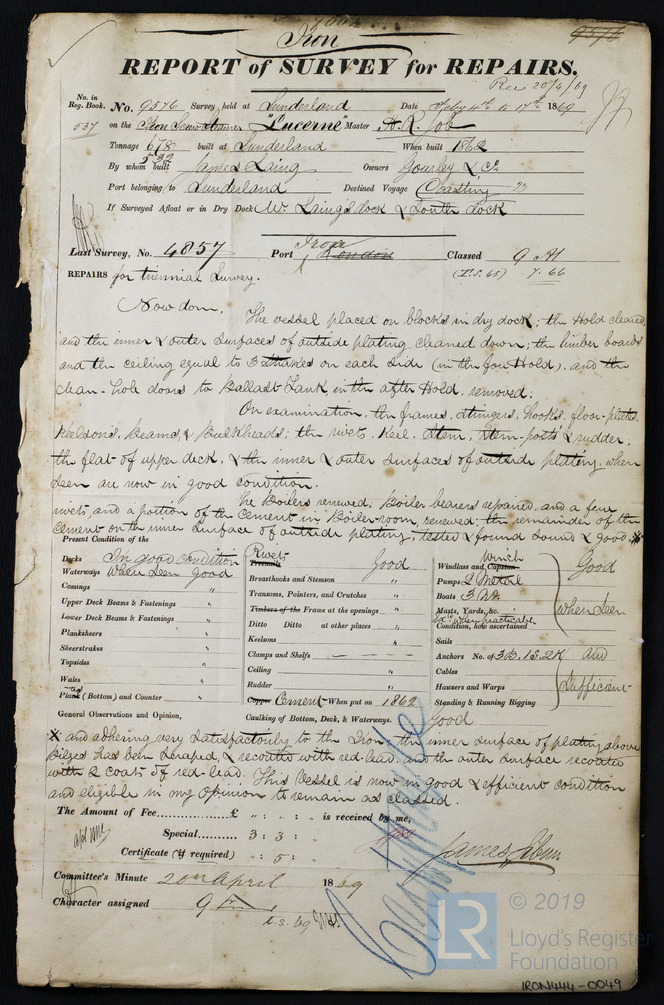 Iron
REPORT of SURVEY for REPAIRS.
Rec 20/4/69
No. in Reg. Book. No. 9576 Survey held at Sunderland Date Feby 4th to 17th 1869
537 on the Iron Screw Steamer "Lucerne" Master A. R. Job
Tonnage 678 built at Sunderland When built 1862
532
By whom built James Laing Owners Gourley & Co
Port belonging to Sunderland Destined Voyage Coasting
If Surveyed Afloat or in Dry Dock Mr Laing's dock & South dock
Last Survey, No. 4857 Port London Iron Classed 9 A1
(I.S. 65) 7.66
REPAIRS for triennial Survey.
Now done. The vessel placed on blocks in dry dock; the Hold cleared,
and the inner & outer surfaces of outside plating cleaned down; the limber boards
and the ceiling equal to 3 Strakes on each side (in the fore Hold), and the
clean-hole doors to Ballast Tank in the after Hold, removed.
On examination, the frames, stringers, hooks, floor-plates,
Keelsons, Beams, & Bulkheads; the rivets, Keel, Stem, Stern-posts & rudder,
the flat of upper deck, & the inner & outer surfaces of outside plating, when
seen are now in good condition.
The Boilers renewed, Boiler bearers repaired, and a few
rivets, and a portion of the Cement in Boiler-room, renewed; the remainder of the
Cement on the inner surface of outside plating, tested & found sound & good, X
Present Condition of the
Decks In good condition
Waterways When seen good
Comings "
Upper Deck Beams & Fastenings "
Lower Deck Beams & Fastenings "
Planksheers "
Sheerstrakes "
Topsides "
Wales "
Plank (Bottom) and Counter "
Rivets
Treenails Good
Breasthooks and Stemson "
Transoms, Pointers, and Crutches "
Timbers of the Frame at the openings "
Ditto Ditto at other places "
Keelsons "
Clamps and Shelfs — — — —
Ceiling "
Rudder "
Copper Cement When put on 1862
Caulking of Bottom, Deck, & Waterways. Good
Winch
Windlass and Capstan Good
Pumps 2 Metal
Boats 3 No
Masts, Yards, &c. when seen
when practicable
Condition, how ascertained
Sails
Anchors No. of 3B. 1S. 2K and
Cables
Hawsers and Warps Sufficient
Standing & Running Rigging
General Observations and Opinion,
X and adhering very satisfactorily to the Iron; the inner surface of plating above
Bilges has been scraped, & recoated with red-lead, and the outer surface recoated
with 2 coats of red-lead. This Vessel is now in good & efficient condition
and eligible in my Opinion to remain as classed.
The Amount of Fee........... £ " : " : " is received by me,
Special........... 3 : 3 : "
Certificate (if required) " : 5 : "
Committee's Minute 20th April 1869
Character assigned 9
I.S. 69
© 2019
LR
Lloyd's Register
Foundation
IRON444-0049